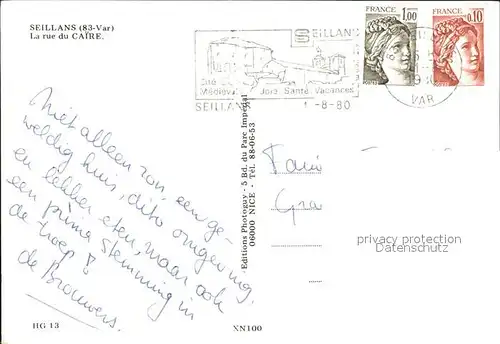 SEILLANS (83-Var)
La rue du CAÏRE.
SEILLANS
Cité Médiévale Joie Santé Vacances
SEILLANS
1-8-80
FRANCE
1,00
FRANCE
0,10
VAR
Niet alleen zon, een ge-
weldig huis, dito omgeving
en lekker eten, maar ook
een prima stemming in
de troep!
de Brouwers.
Editions Photoguy - 5 Bd. du Parc Impérial
06000 NICE - Tél. 88-06-53
Fami
Gra
privacy protection
Datenschutz
HG 13
XN100